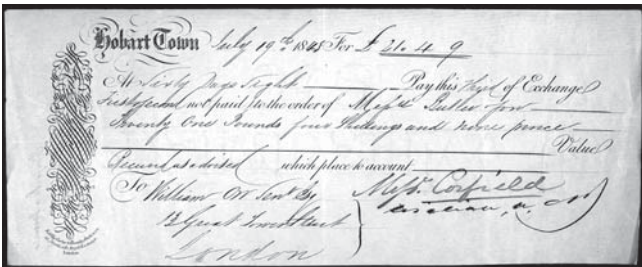 Hobart Town July 19th 1848 For £ 21.4.9
At Sixty Days Sight Pay this Third of Exchange
First & Second not paid to the order of Messrs Butler
Twenty One Pounds four Shillings and Nine pence
Value
Received as advised which place to account
To William Esq Messrs. Corfield
13 Great Tower Street
London